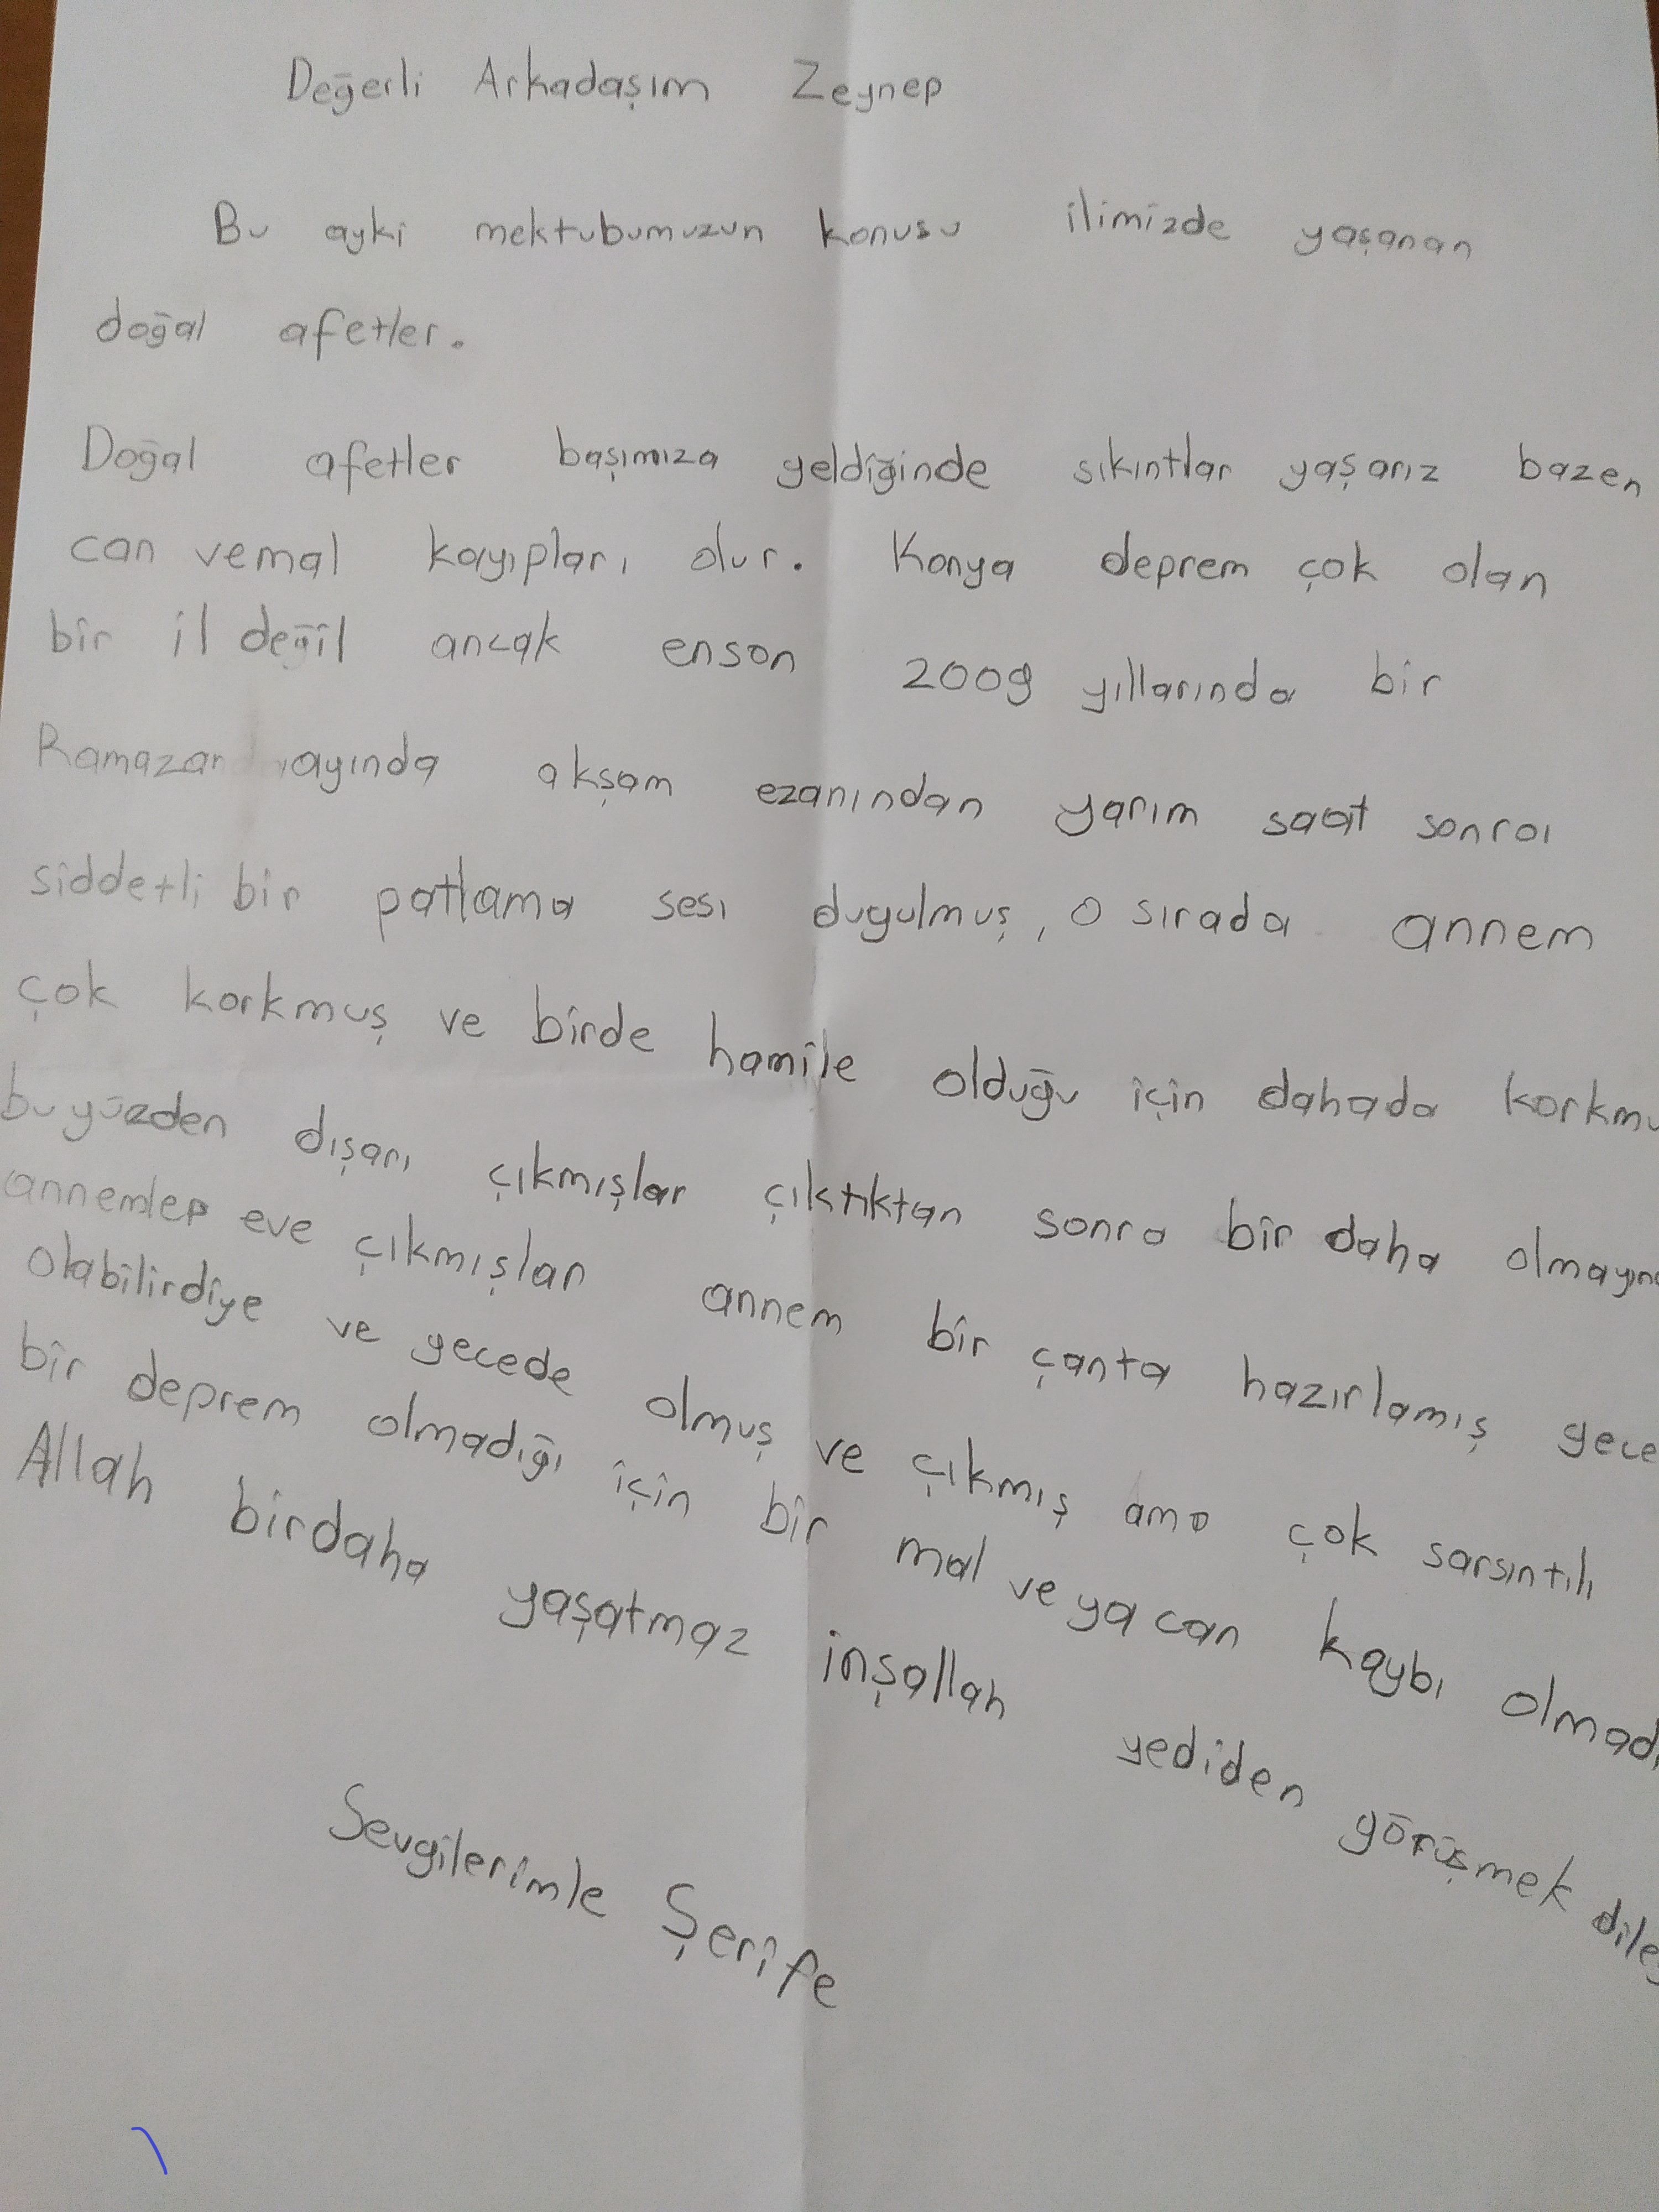 Değerli Arkadaşım Zeynep
Bu ayki mektubumuzun konusu ilimizde yaşanan
doğal afetler.
Doğal afetler başımıza geldiğinde sıkıntlar yaşarız bazen
can vemal kayıpları olur. Konya deprem çok olan
bir il değil ancak enson 2009 yıllarında bir
Ramazan ayında akşam ezanından yarım saat sonra
siddetli bir patlama sesı duyulmuş, o sırada annem
çok korkmuş ve birde hamile olduğu için dahada korkmu
buyüzden dışarı çıkmışlar çıktıktan sonra bir daha olmayınc
annemler eve çıkmışlar annem bir çanta hazırlamış gece
olabilirdiye ve gecede olmuş ve çıkmış ama çok sarsıntılı
bir deprem olmadığı için bir mal ve ya can kaybı olmadı
Allah birdaha yaşatmaz inşallah yediden görüşmek dile
Sevgilerimle Şerife